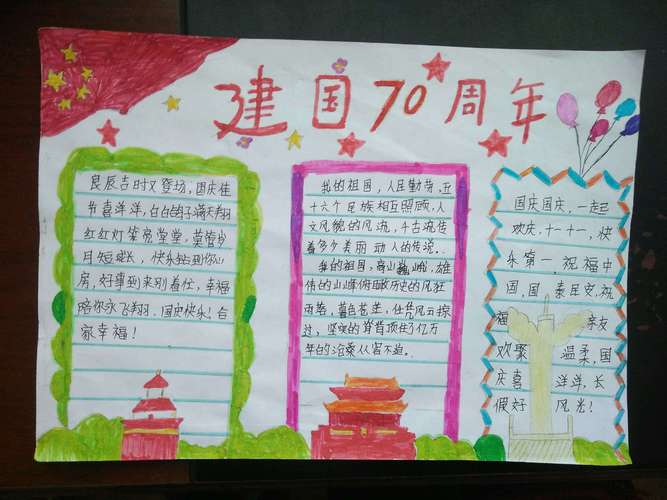 建国70周年
良辰吉时又登场,国庆佳
节喜洋洋,白白鸽子满天翔
红红灯笼亮堂堂,
月短
房,好事到来别着忙,幸福
陪你永飞翔。国庆快乐!合
家幸福!
我的祖国,人民勤劳,五
十六个民族相互照顾,人
文风貌的风流,千古流传
着多少美丽动人的传说.
我的祖国,高山巍峨,雄
伟的山峰俯瞰历史的风狂
雨落,暮色苍茫,任凭风云掠
过,坚实的脊背顶住了亿万
年的沧桑从容不迫。
国庆国庆,一起
欢庆.十一十一,快
乐第一 祝福中
国,国泰民安,祝
福 亲友
欢聚 温柔,国
庆喜 洋洋,长
假好 风光!